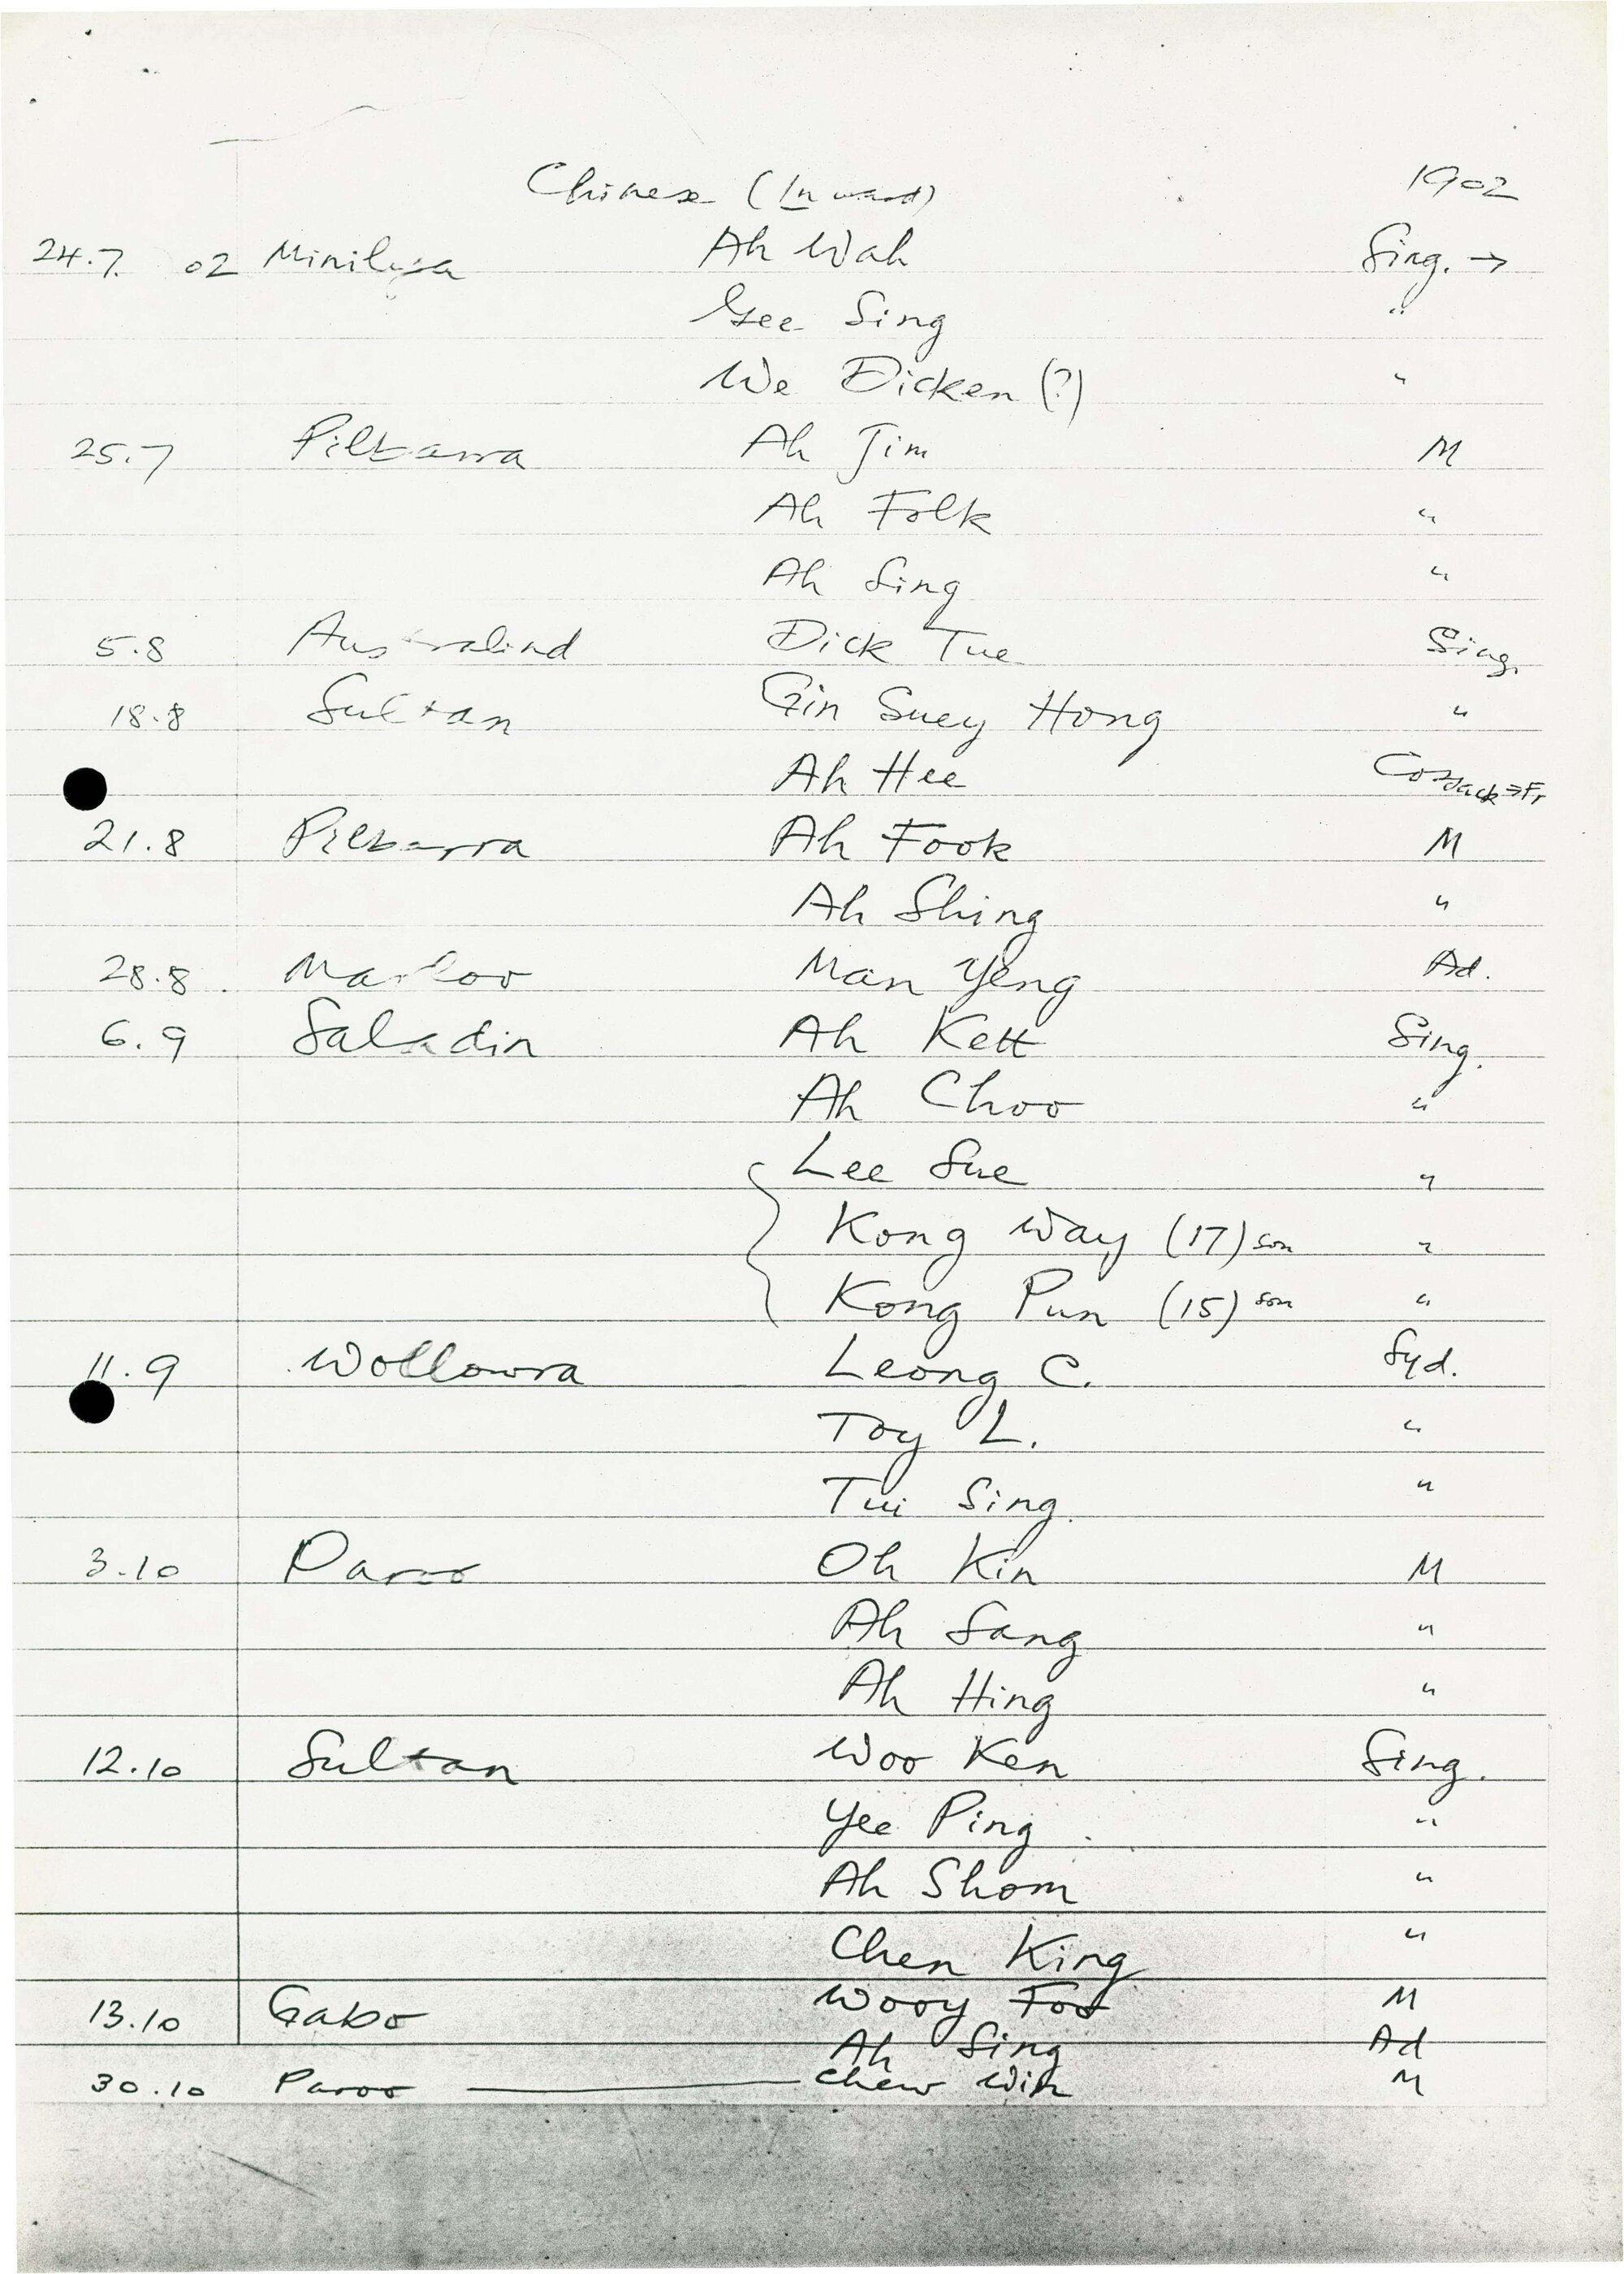 Chinese (Inward) 1902
24.7. 02 Minilya Ah Wah Sing. →
Gee Sing "
We Dicken (?) "
25.7 Pilbarra Ah Jim M
Ah Folk "
Ah Sing "
5.8 Australind Dick Tue Sing.
18.8 Sultan Gin Suey Hong "
Ah Hee Cossack → Fr
21.8 Pilbarra Ah Fook M
Ah Shing "
28.8. Marloo Man Yeng Ad.
6.9 Saladin Ah Kett Sing.
Ah Choo "
Lee Sue "
Kong Way (17) son "
Kong Pun (15) son "
11.9 Wollowra Leong C. Syd.
Toy L. "
Tui Sing. "
3.10 Paroo Oh Kin M
Ah Sang "
Ah Hing "
12.10 Sultan Woo Ken Sing.
Yee Ping "
Ah Shom "
Chen King "
13.10 Gabo Wooy Foo M
Ah Sing Ad
30.10 Paroo — Chew Win M